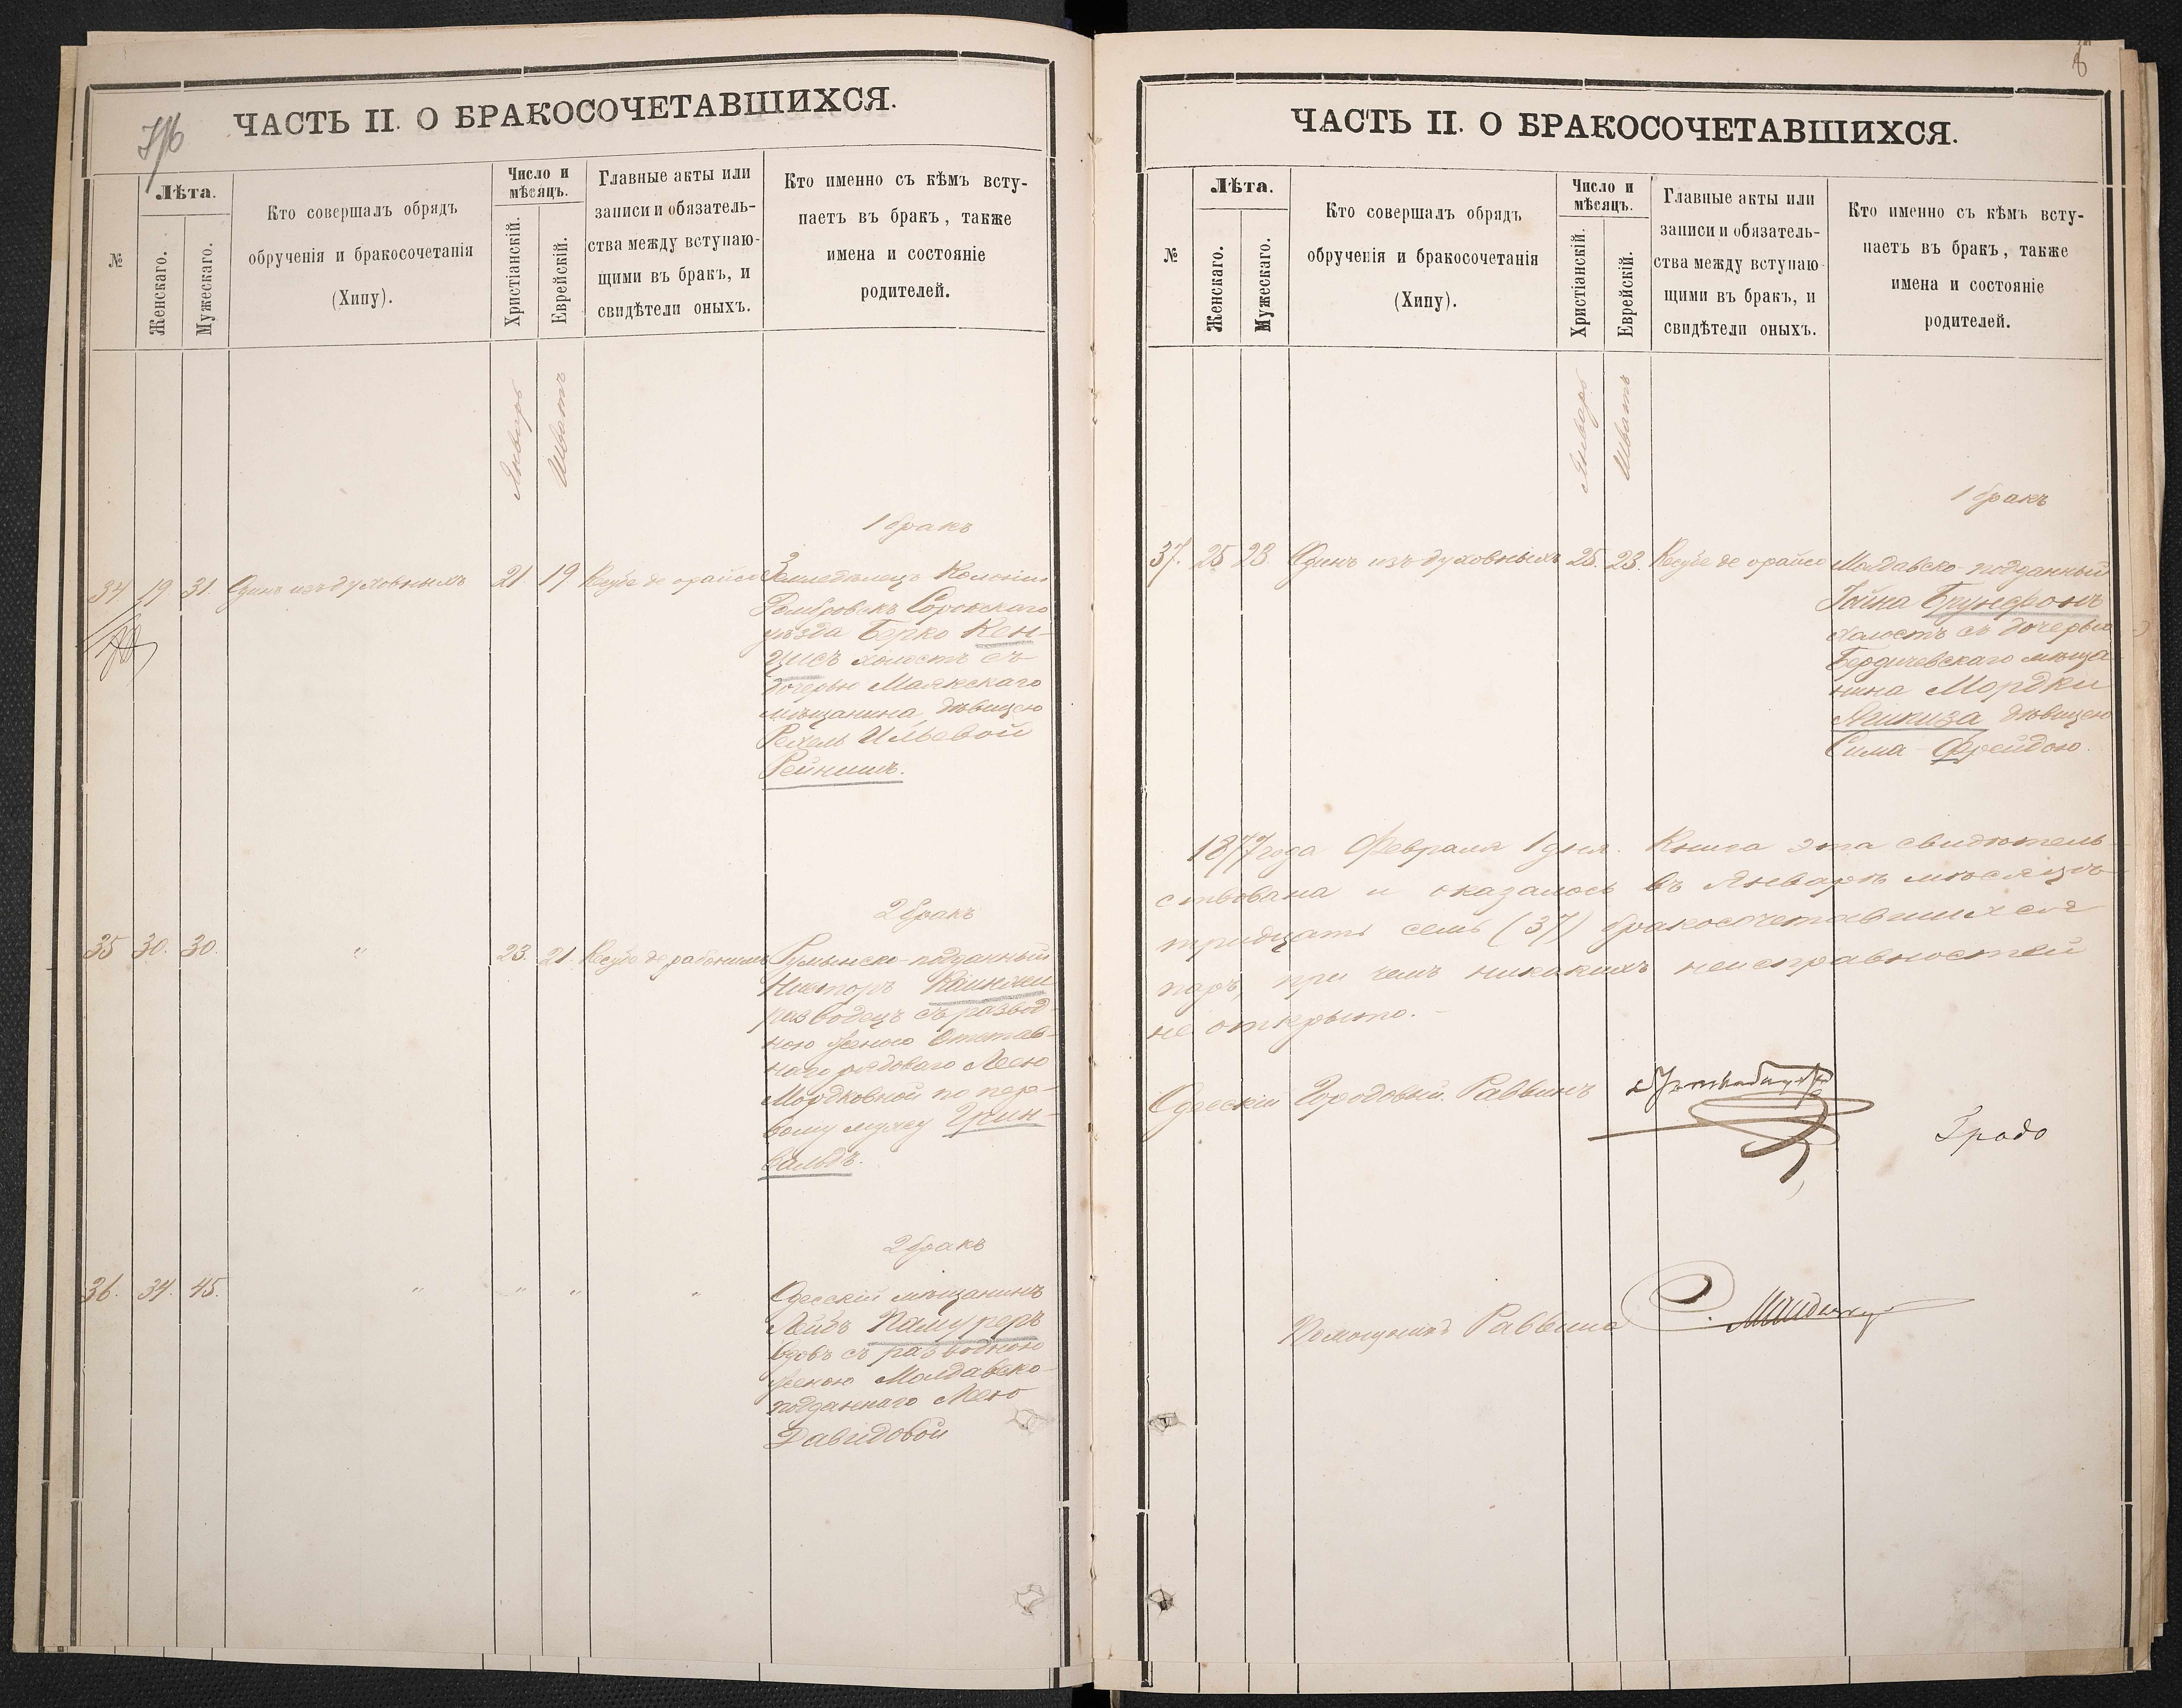 ЧАСТЬ II. О БРАКОСОЧЕТАВШИХСЯ.
№
Лѣта.
Женскаго.
Мужескаго.
Кто совершалъ обрядъ
обрученія и бракосочетанія
(Хипу).
Число и
мѣсяцъ.
Христіанскій.
Еврейскій.
Главные акты или
записи и обязатель-
ства между вступаю-
щими въ бракъ, и
свидѣтели оныхъ.
Кто именно съ кѣмъ всту-
паетъ въ бракъ, также
имена и состояніе
родителей.
Январь
Шватъ
1 бракъ
34 19 31. Одинъ изъ духовныхъ 21 19 Кесубе де орайсо Земледѣлецъ Колоніи
Сорокскаго
уѣзда Берко Кен-
цисъ холостъ съ
дочерью Маякскаго
мѣщанина, дѣвицею
Рехель Ильевой
Рейнишъ.
2 бракъ
35 30. 30. " 23. 21. Кесубе де рабонимъ Румынско-подданный
Каинчи
разводецъ съ развод-
ною женою Отстав-
наго рядоваго Леею
Мордковной по пер-
вому мужу Грин-
вальдъ.
2 бракъ
36. 34. 45. " " " " Одесскій мѣщанинъ
Лейбъ
вдовъ съ разводною
женою Молдавско-
подданнаго Леею
Давидовой
8
ЧАСТЬ II. О БРАКОСОЧЕТАВШИХСЯ.
№
Лѣта.
Женскаго.
Мужескаго.
Кто совершалъ обрядъ
обрученія и бракосочетанія
(Хипу).
Число и
мѣсяцъ.
Христіанскій.
Еврейскій.
Главные акты или
записи и обязатель-
ства между вступаю
щими въ бракъ, и
свидѣтели оныхъ.
Кто именно съ кѣмъ всту-
паетъ въ бракъ, также
имена и состояніе
родителей.
Январь
Шватъ
1 бракъ
37. 25 23. Одинъ изъ духовныхъ 25. 23. Кесубе де орайсо Молдавско-подданный
Іойна Брунфонъ
холостъ съ дочерью
Бердичевскаго мѣща-
нина Мордки
дѣвицею
Сима-Фрейдою.
1877 года Февраля 1 дня. Книга эта свидѣтель-
ствована и оказалось въ Январѣ мѣсяцѣ
тридцать семь (37) бракосочетавшихся
паръ, при чемъ никакихъ неисправностей
не открыто.
Одесскій Городовый Раввинъ
Помощникъ Раввина